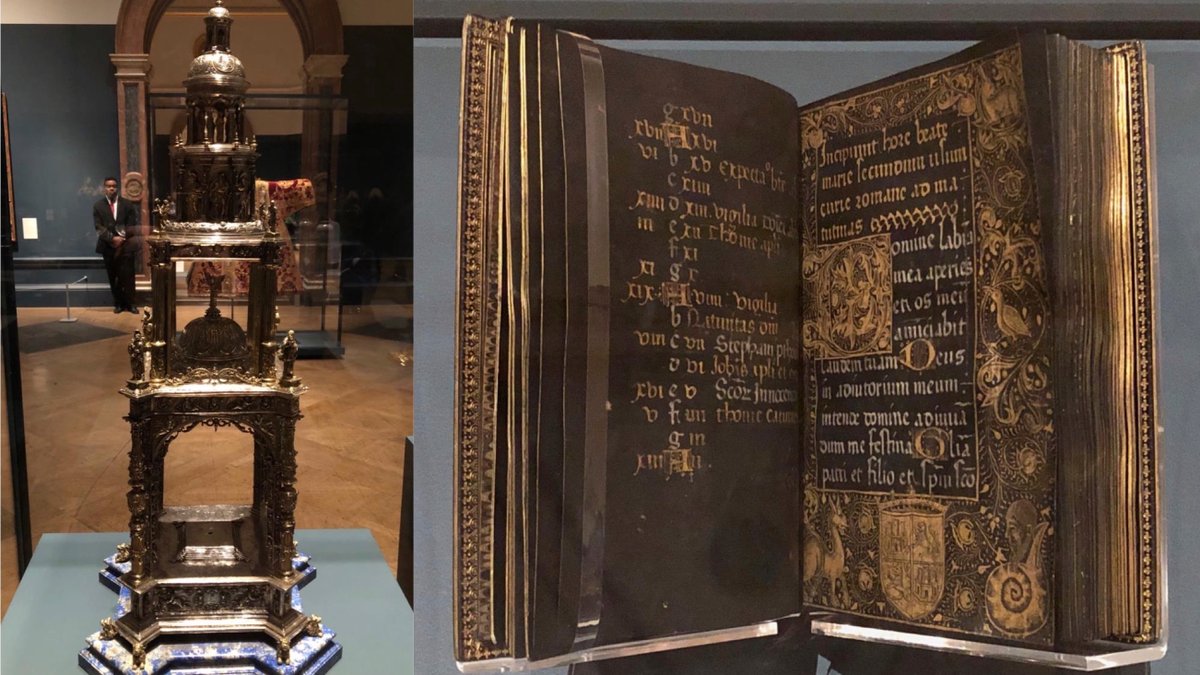 g xvii
xvii A xvi
vi b xv Expectaº
c xiiii
xiiii d xiii. vigilia
iii e xii Thome
f xi
xi g x
xix A viiii Vigilia
b Natiuitas
viii c vii Stephani
d vi
xvi e v
v f iiii thome
g iii
xiii A ii.
Incipiunt hore beate
marie secundum usum
curie romane ad ma
tutinas
Domine labia
mea aperies
et os meū
anūciabit
laudem tuam Deus
in adiutorium meum
intende domine adiuuā
dum me festina Gl'ia
patri et filio et spūi scō